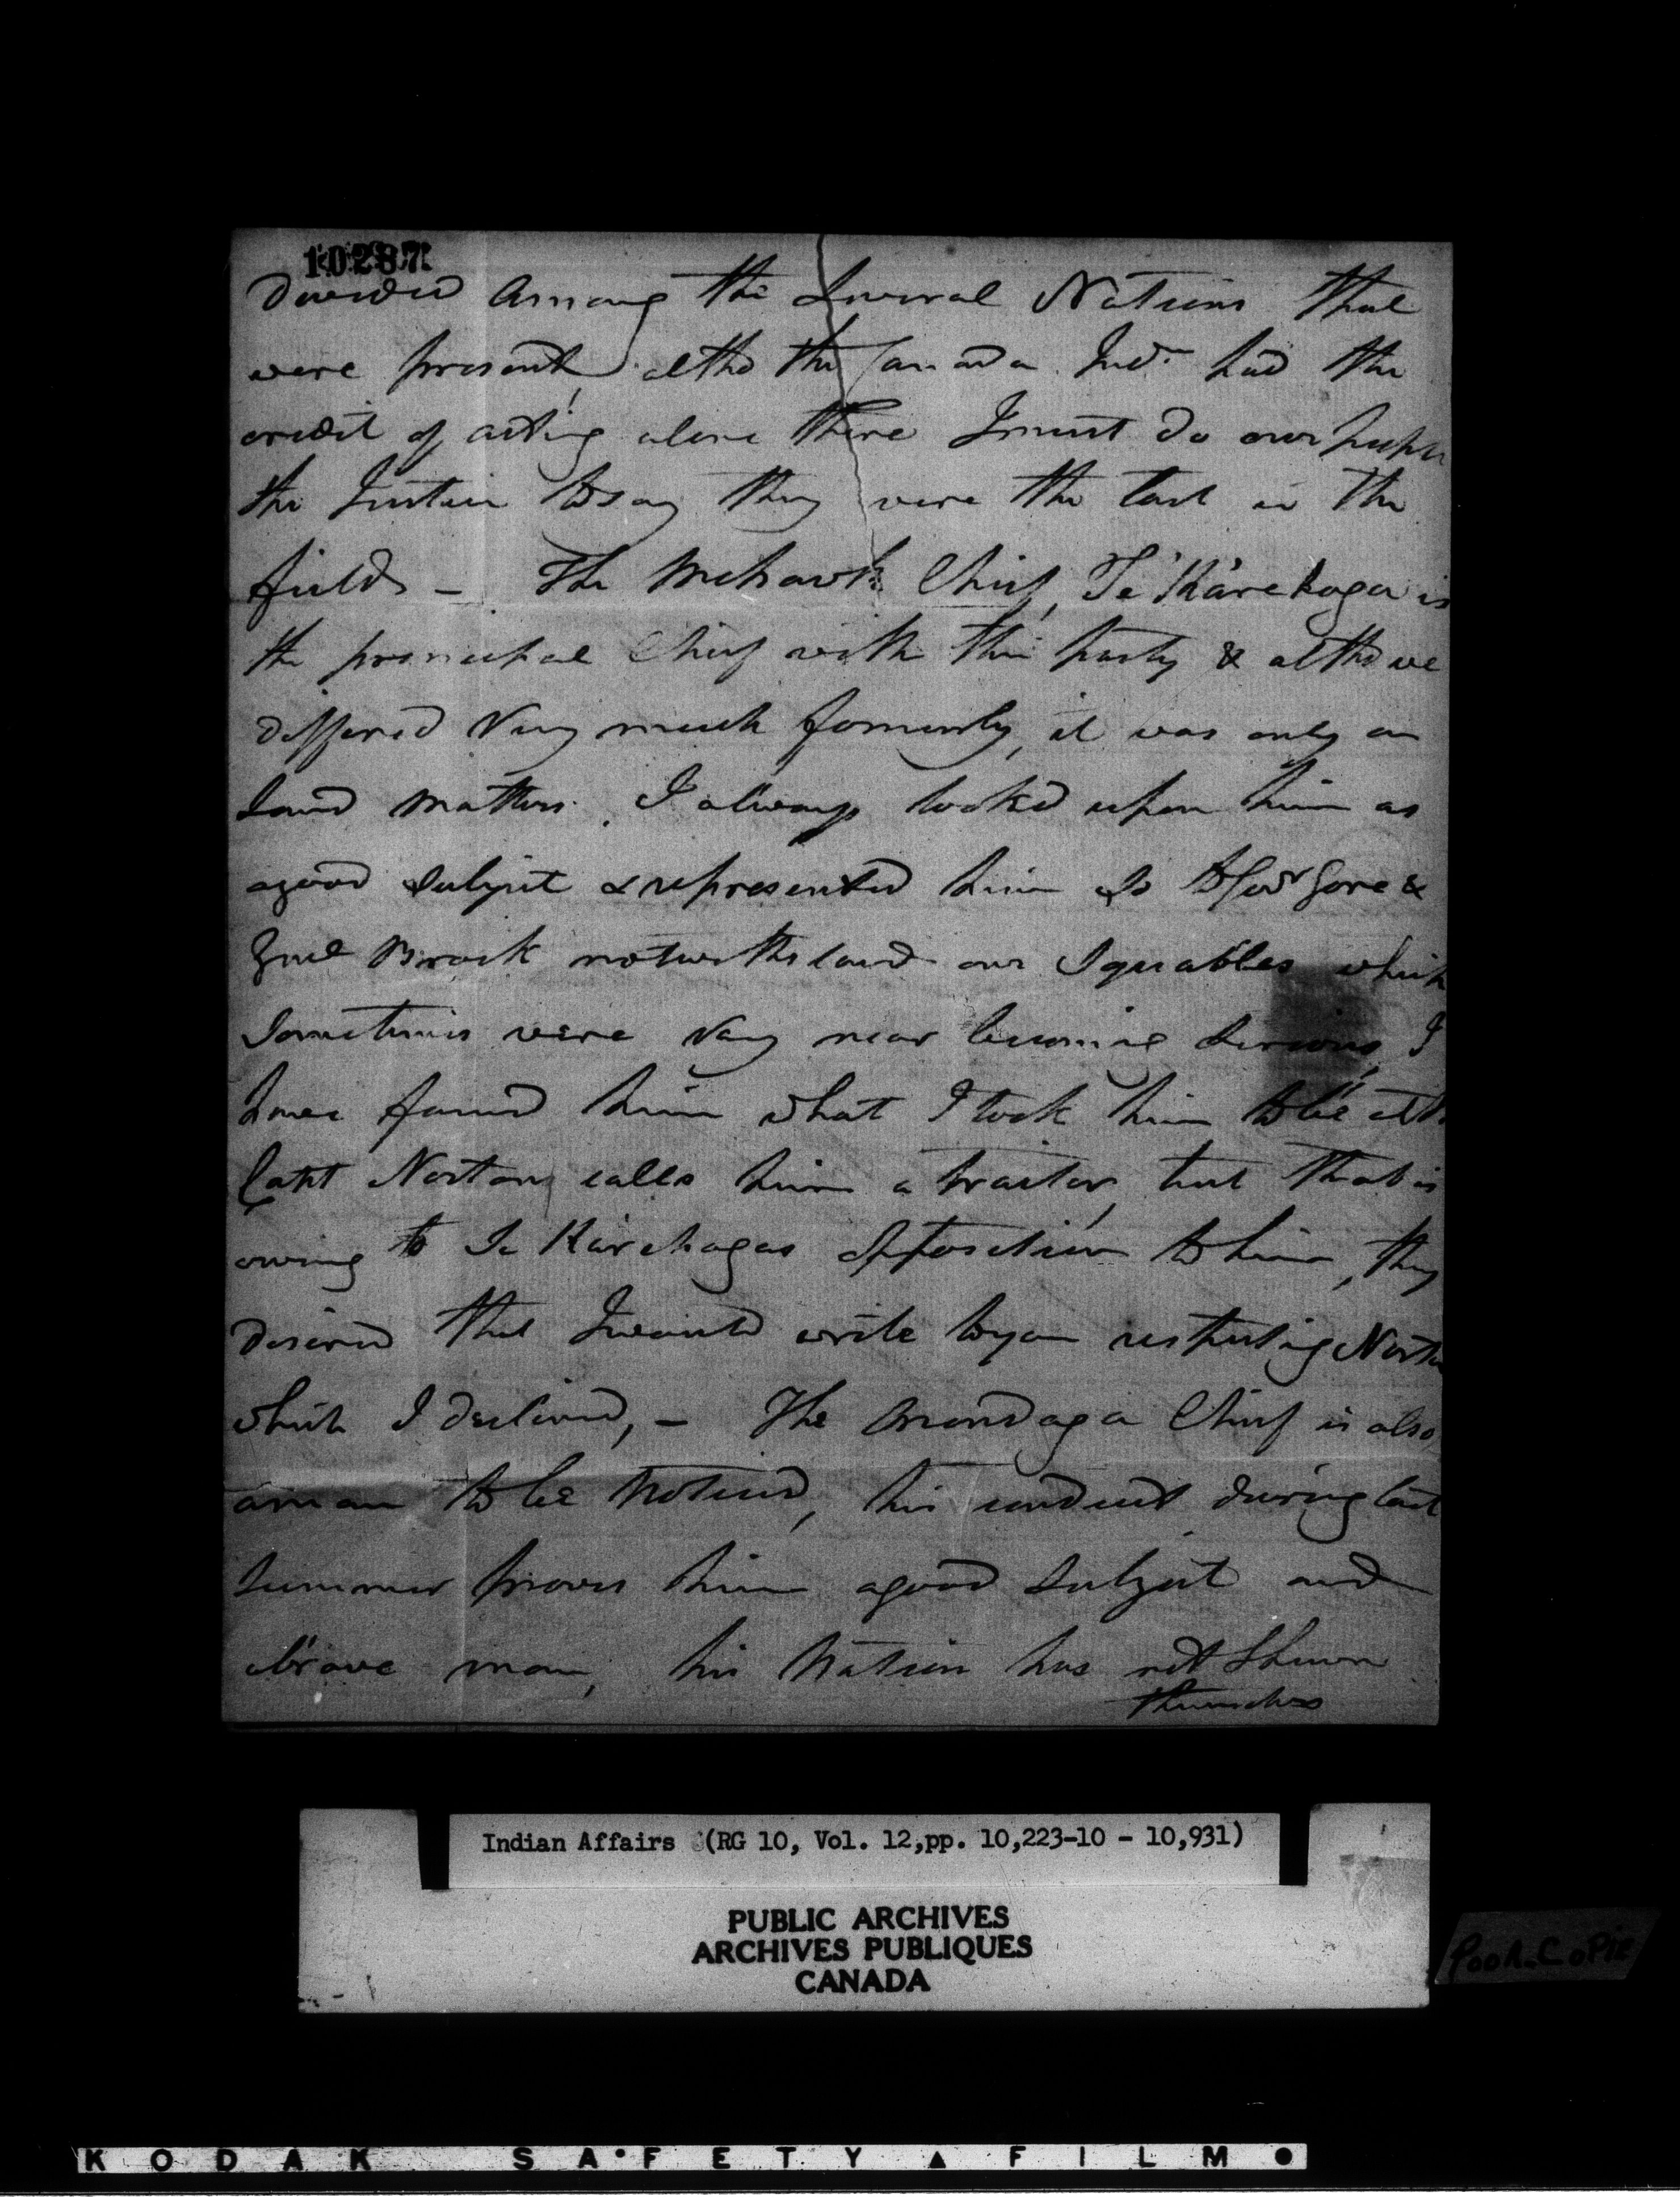 10287
divided among the several Nations that
were present, altho the Canada Inds. had the
credit of acting alone there I must do our people
the Justice to say they were the last in the
field – The Mohawk Chief, Te'Kárehoga is
the principal Chief with this party & altho we
differed Very much formerly, it was only on
Land Matters. I always looked upon him as
a good Subject & represented him so to Govr Gore &
Genl Brock notwithstand our Squabbles which
Sometimes were Very near becoming Serious, I
have found him what I took him to be altho
Capt Norton calls him a traitor, but that is
owing to Te Kárehogas Opposition to him, they
desired that I would write to you respecting Norton
which I declined, – The Onondaga Chief is also
a man to be Noticed, his conduct during last
Summer proves him a good Subject and
a brave man, his Nation has not Shewn
themselves
Indian Affairs (RG 10, Vol. 12,pp. 10,223-10 - 10,931)
PUBLIC ARCHIVES
ARCHIVES PUBLIQUES
CANADA
POOR COPIE
KODAK SAFETY FILM